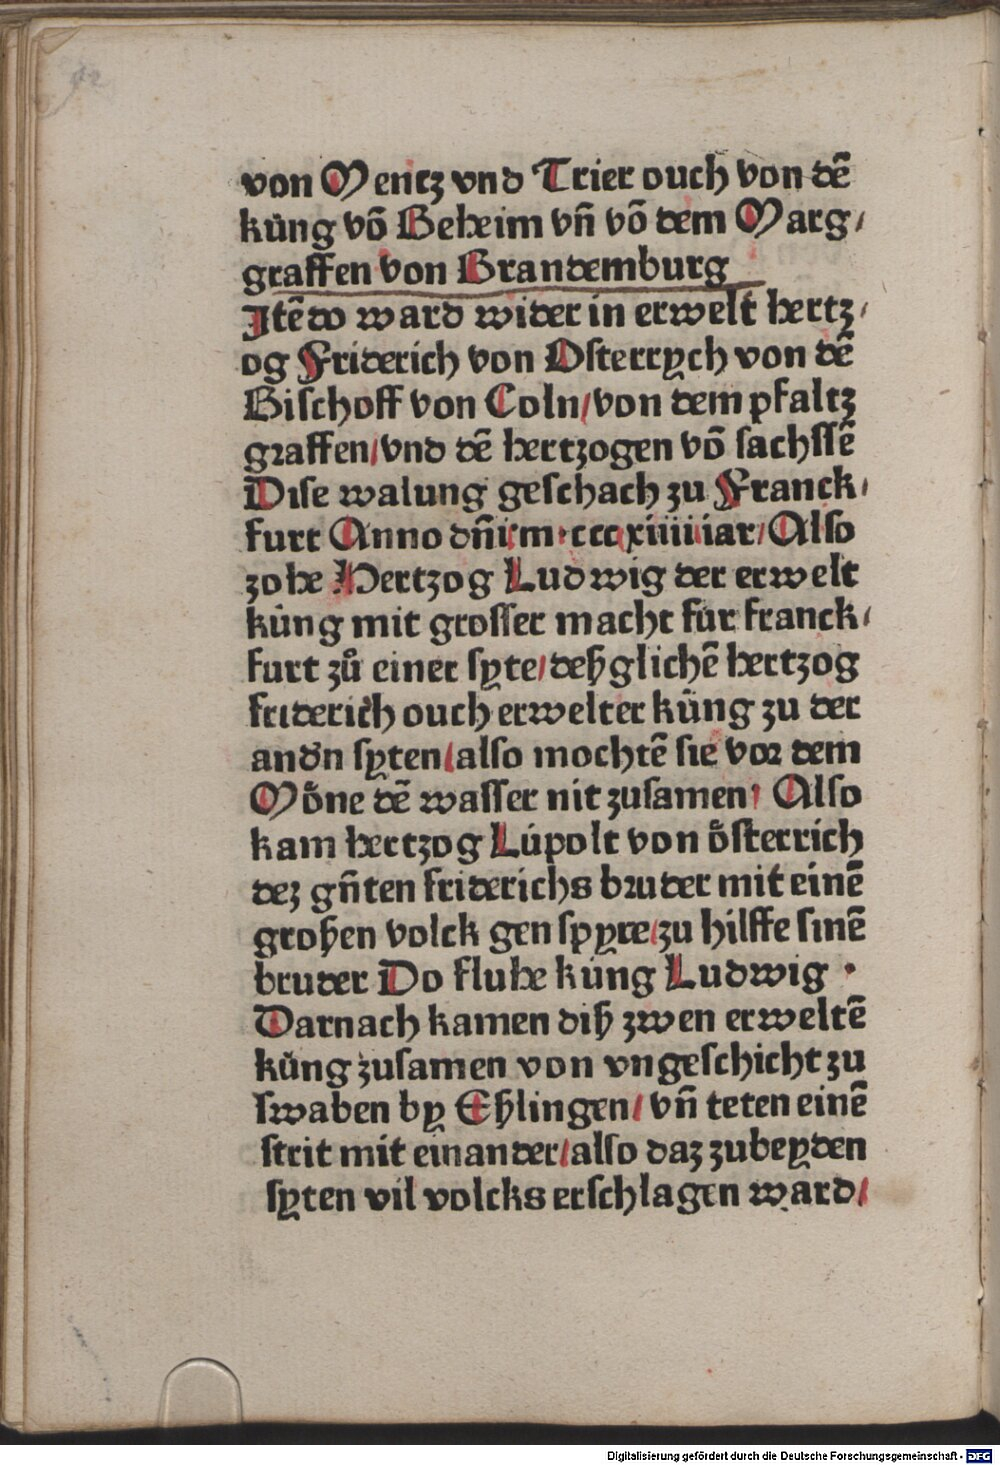 von Mentz vnd Trier ouch von dẽ
kúng võ Beheim vñ võ dem Marg⸗
graffen von Brandemburg
Itẽ do ward wider in erwelt hertz⸗
og Friderich von Osterrych von dẽ
Bischoff von Coln/ von dem pfaltz
graffen/ vnd dẽ hertzogen võ sachssẽ
Dise walung geschach zu Franck⸗
furt Anno dñi m·cccxiiiiiar/ Also
zohe Hertzog Ludwig der erwelt
kúng mit grosser macht fúr franck⸗
furt zů einer syte/ deßglichẽ hertzog
friderich ouch erwelter kúng zu der
andn syten/ also mochtẽ sie vor dem
Moͤne dẽ wasser nit zusamen/ Also
kam hertzog Lúpolt von oͤsterrich
dez gñten friderichs bruder mit einẽ
großen volck gen spyre/ zu hilffe sinẽ
bruder Do fluhe kúng Ludwig ·
Darnach kamen diß zwen erweltẽ
kúng zusamen von vngeschicht zu
swaben by Eßlingen/ vñ teten einẽ
strit mit einander/ also daz zubeyden
syten vil volcks erschlagen ward/
Digitalisierung gefördert durch die Deutsche Forschungsgemeinschaft - DFG